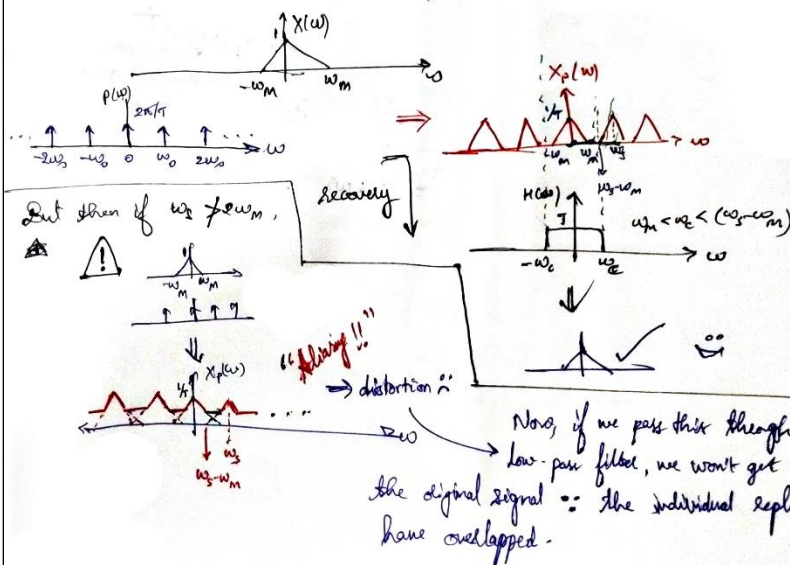 X(ω)
1
-ω_M ω_M ω
P(ω)
2π/T
... ...
-2ω_s -ω_s 0 ω_s 2ω_s ω
⇒
X_p(ω)
1/T
-ω_M ω_M ω_s ω
ω_s-ω_M
recovery
H(ω)
T
ω_M < ω_c < (ω_s-ω_M)
-ω_c ω_c ω
But then if ω_s ≯ 2ω_M,
!
1
-ω_M ω_M
⇓
1/T X_p(ω)
"Aliasing!!"
→ distortion
.... ω
ω_s
ω_s-ω_M
Now, if we pass this through
low-pass filter, we won't get
the original signal ∵ the individual repl
have overlapped.